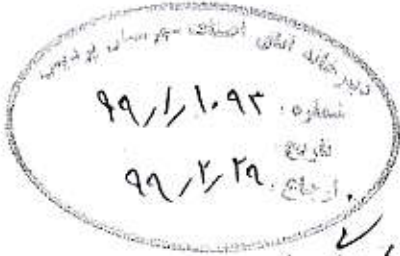 دبیرخانه اتاق اصناف
شماره: ۹۹/۱/۱۰۹۳
تاریخ
ارجاع: ۹۹/۲/۲۹